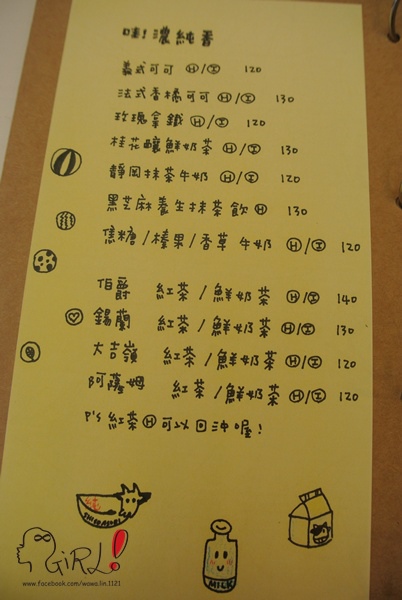 哇!濃純香
義式可可 Ⓗ/Ⓘ 120
法式香橘可可 Ⓗ/Ⓘ 130
玫瑰拿鐵 Ⓗ/Ⓘ 120
桂花釀鮮奶茶 Ⓗ/Ⓘ 130
靜岡抹茶牛奶 Ⓗ/Ⓘ 120
黑芝麻養生抹茶飲 Ⓗ 130
焦糖/榛果/香草 牛奶 Ⓗ/Ⓘ 120
伯爵 紅茶/鮮奶茶 Ⓗ/Ⓘ 140
錫蘭 紅茶/鮮奶茶 Ⓗ/Ⓘ 130
大吉嶺 紅茶/鮮奶茶 Ⓗ/Ⓘ 120
阿薩姆 紅茶/鮮奶茶 Ⓗ/Ⓘ 120
P's 紅茶Ⓗ可以回沖喔!
GiRL!
MILK
www.facebook.com/wowo.lin.1121